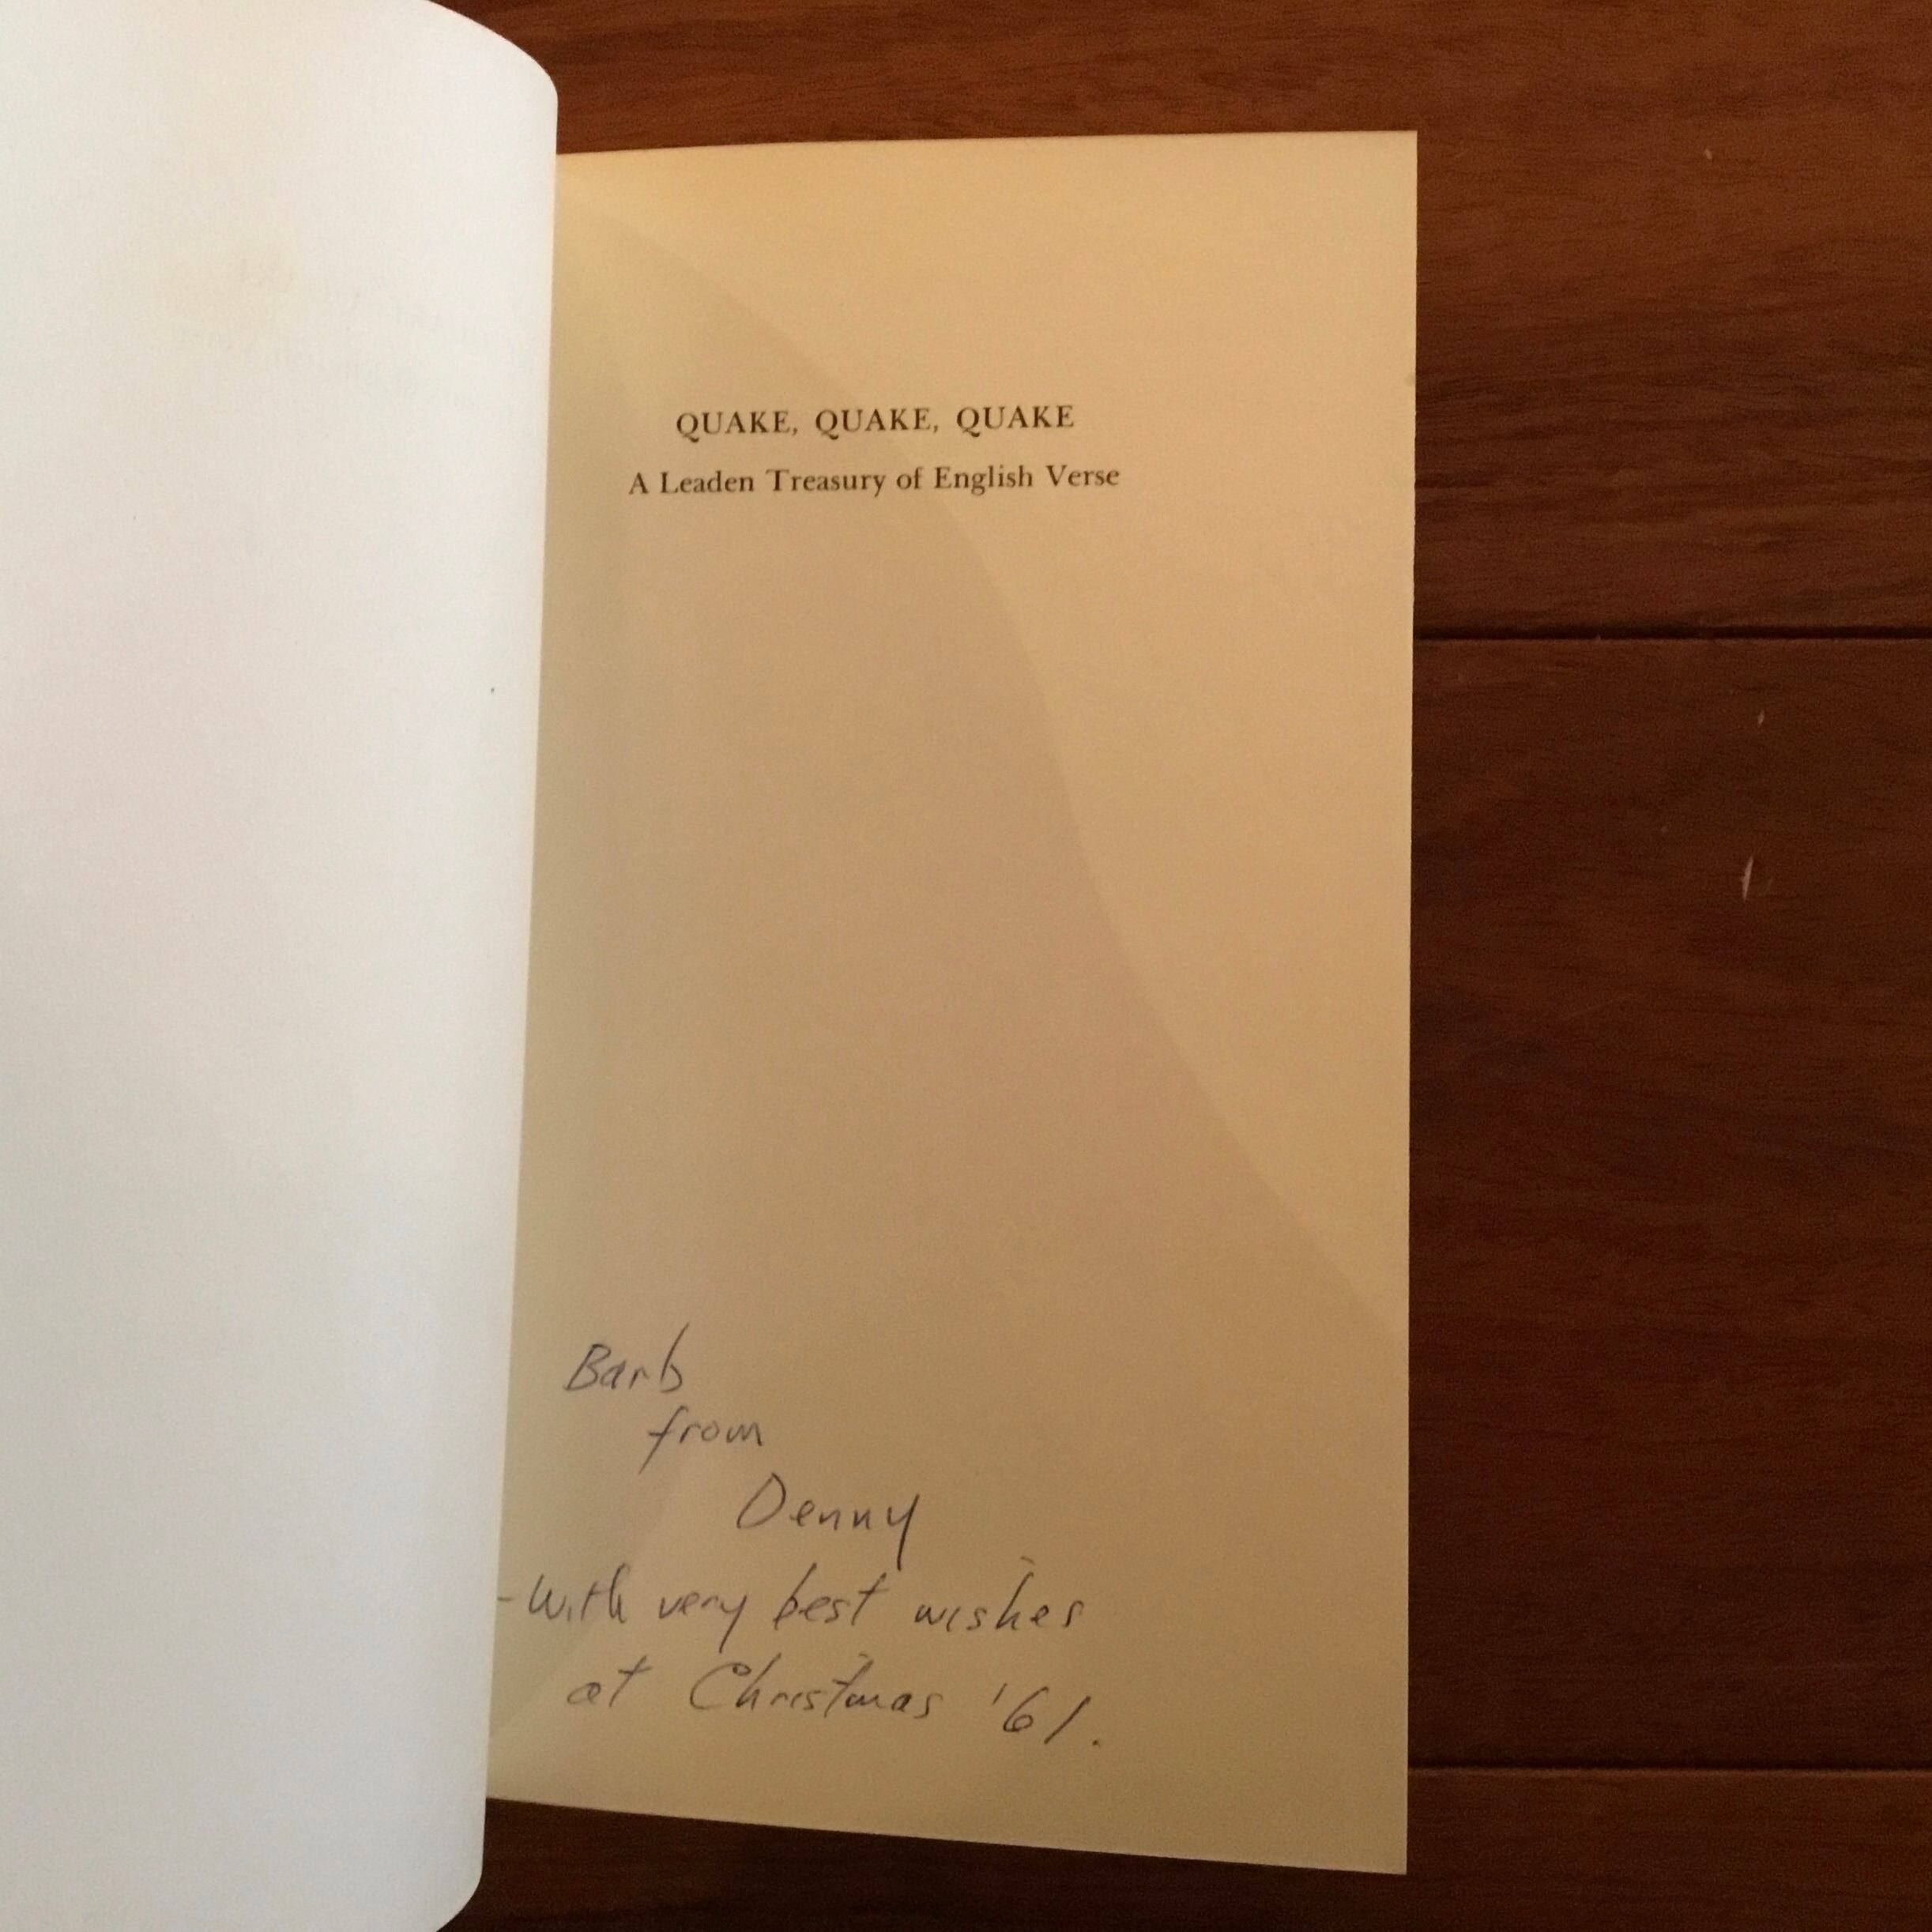 QUAKE, QUAKE, QUAKE
A Leaden Treasury of English Verse
Barb
from
Denny
- With very best wishes
at Christmas '61.